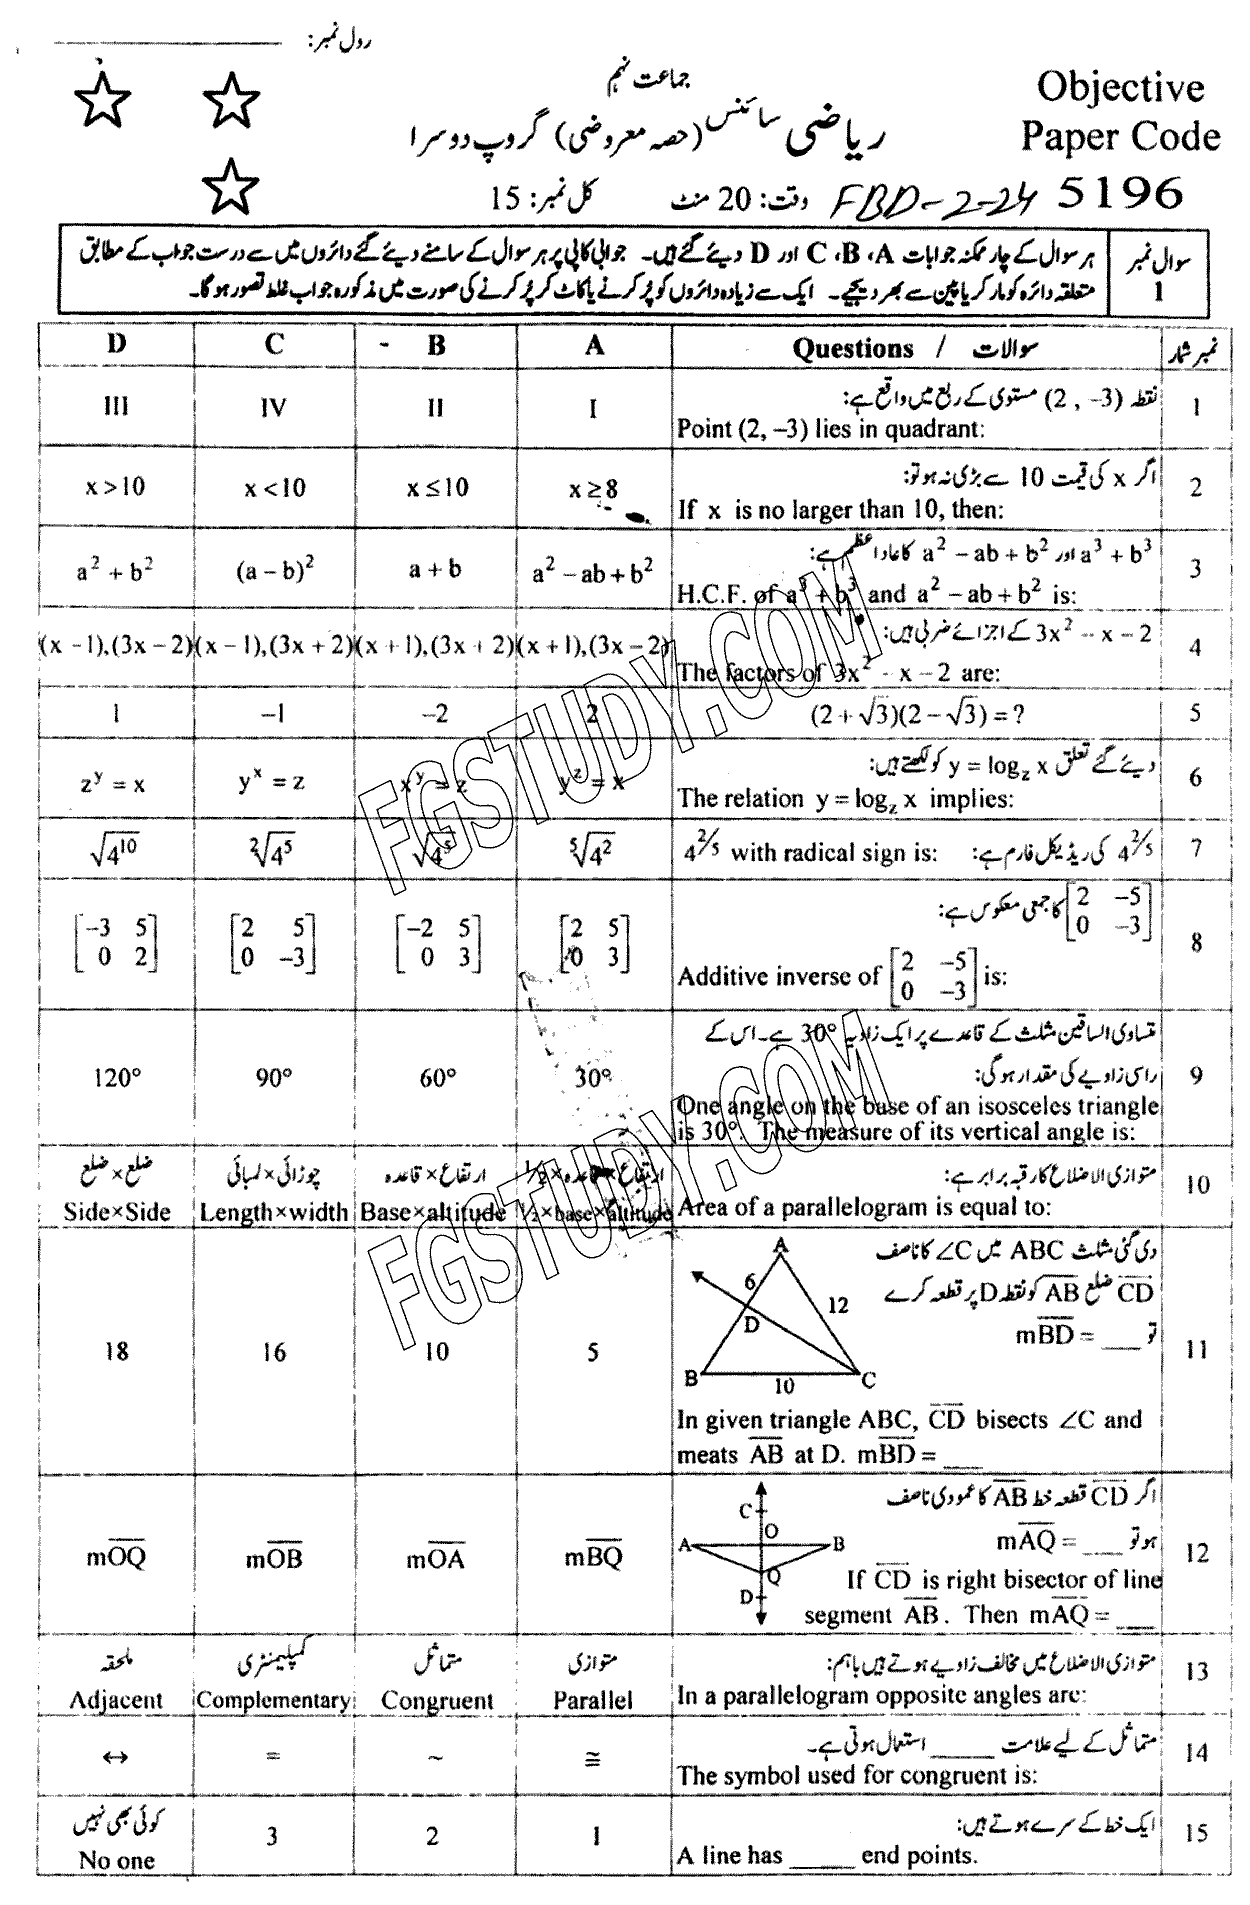 رول نمبر: ____________
جماعت نہم
ریاضی سائنس (حصہ معروضی) گروپ دوسرا
Objective
Paper Code
وقت: 20 منٹ کل نمبر: 15
FBD-2-24 5196
سوال نمبر 1
ہر سوال کے چار ممکنہ جوابات A، B، C اور D دیئے گئے ہیں۔ جوابی کاپی پر ہر سوال کے سامنے دیئے گئے دائروں میں سے درست جواب کے مطابق
متعلقہ دائرہ کو مارکر یا پین سے بھر دیجیے۔ ایک سے زیادہ دائروں کو پُر کرنے یا کاٹ کر پُر کرنے کی صورت میں مذکورہ جواب غلط تصور ہوگا۔
D C - B A Questions / سوالات نمبر شمار
نقطہ (2 , –3) مستوی کے ربع میں واقع ہے: 1
III IV II I Point (2, –3) lies in quadrant:
اگر x کی قیمت 10 سے بڑی نہ ہو تو: 2
x > 10 x < 10 x ≤ 10 x ≥ 8 If x is no larger than 10, then:
a³ + b³ اور a² – ab + b² کا عاد اعظم ہے: 3
a² + b² (a – b)² a + b a² – ab + b² H.C.F. of a³ + b³ and a² – ab + b² is:
3x² – x – 2 کے اجزائے ضربی ہیں: 4
(x –1),(3x – 2) (x – 1),(3x + 2) (x + 1),(3x + 2) (x + 1),(3x – 2) The factors of 3x² - x – 2 are:
1 –1 –2 2 (2 + √3)(2 – √3) = ? 5
دیئے گئے تعلق y = log_z x کو لکھتے ہیں: 6
z^y = x y^x = z x^y = z y^z = x The relation y = log_z x implies:
√4¹⁰ ²√4⁵ √4⁵ ⁵√4² 4^(2/5) with radical sign is: 4^(2/5) کی ریڈیکل فارم ہے: 7
[2 –5; 0 –3] کا جمعی معکوس ہے: 8
[–3 5; 0 2] [2 5; 0 –3] [–2 5; 0 3] [2 5; 0 3] Additive inverse of [2 –5; 0 –3] is:
متساوی الساقین مثلث کے قاعدے پر ایک زاویہ 30° ہے۔ اس کے
راسی زاویے کی مقدار ہوگی: 9
120° 90° 60° 30° One angle on the base of an isosceles triangle
is 30°. The measure of its vertical angle is:
ضلع×ضلع چوڑائی×لمبائی ارتفاع×قاعدہ ارتفاع×قاعدہ×½ متوازی الاضلاع کا رقبہ برابر ہے: 10
Side×Side Length×width Base×altitude ½×base×altitude Area of a parallelogram is equal to:
دی گئی مثلث ABC میں ∠C کا ناصف
CD ضلع AB کو نقطہ D پر قطعہ کرے
تو mBD = ___ 11
A 6 12 D B 10 C
18 16 10 5
In given triangle ABC, CD bisects ∠C and
meats AB at D. mBD = ___
اگر CD قطعہ خط AB کا عمودی ناصف
ہو تو mAQ = ___ 12
C O A B Q D
mOQ mOB mOA mBQ
If CD is right bisector of line
segment AB. Then mAQ = ___
ملحقہ کمپلیمنٹری متماثل متوازی متوازی الاضلاع میں مخالف زاویے ہوتے ہیں باہم: 13
Adjacent Complementary Congruent Parallel In a parallelogram opposite angles are:
متماثل کے لیے علامت _____ استعمال ہوتی ہے۔ 14
↔ = ~ ≅ The symbol used for congruent is:
کوئی بھی نہیں ایک خط کے سرے ہوتے ہیں: 15
No one 3 2 1 A line has _____ end points.
FGSTUDY.COM
FGSTUDY.COM